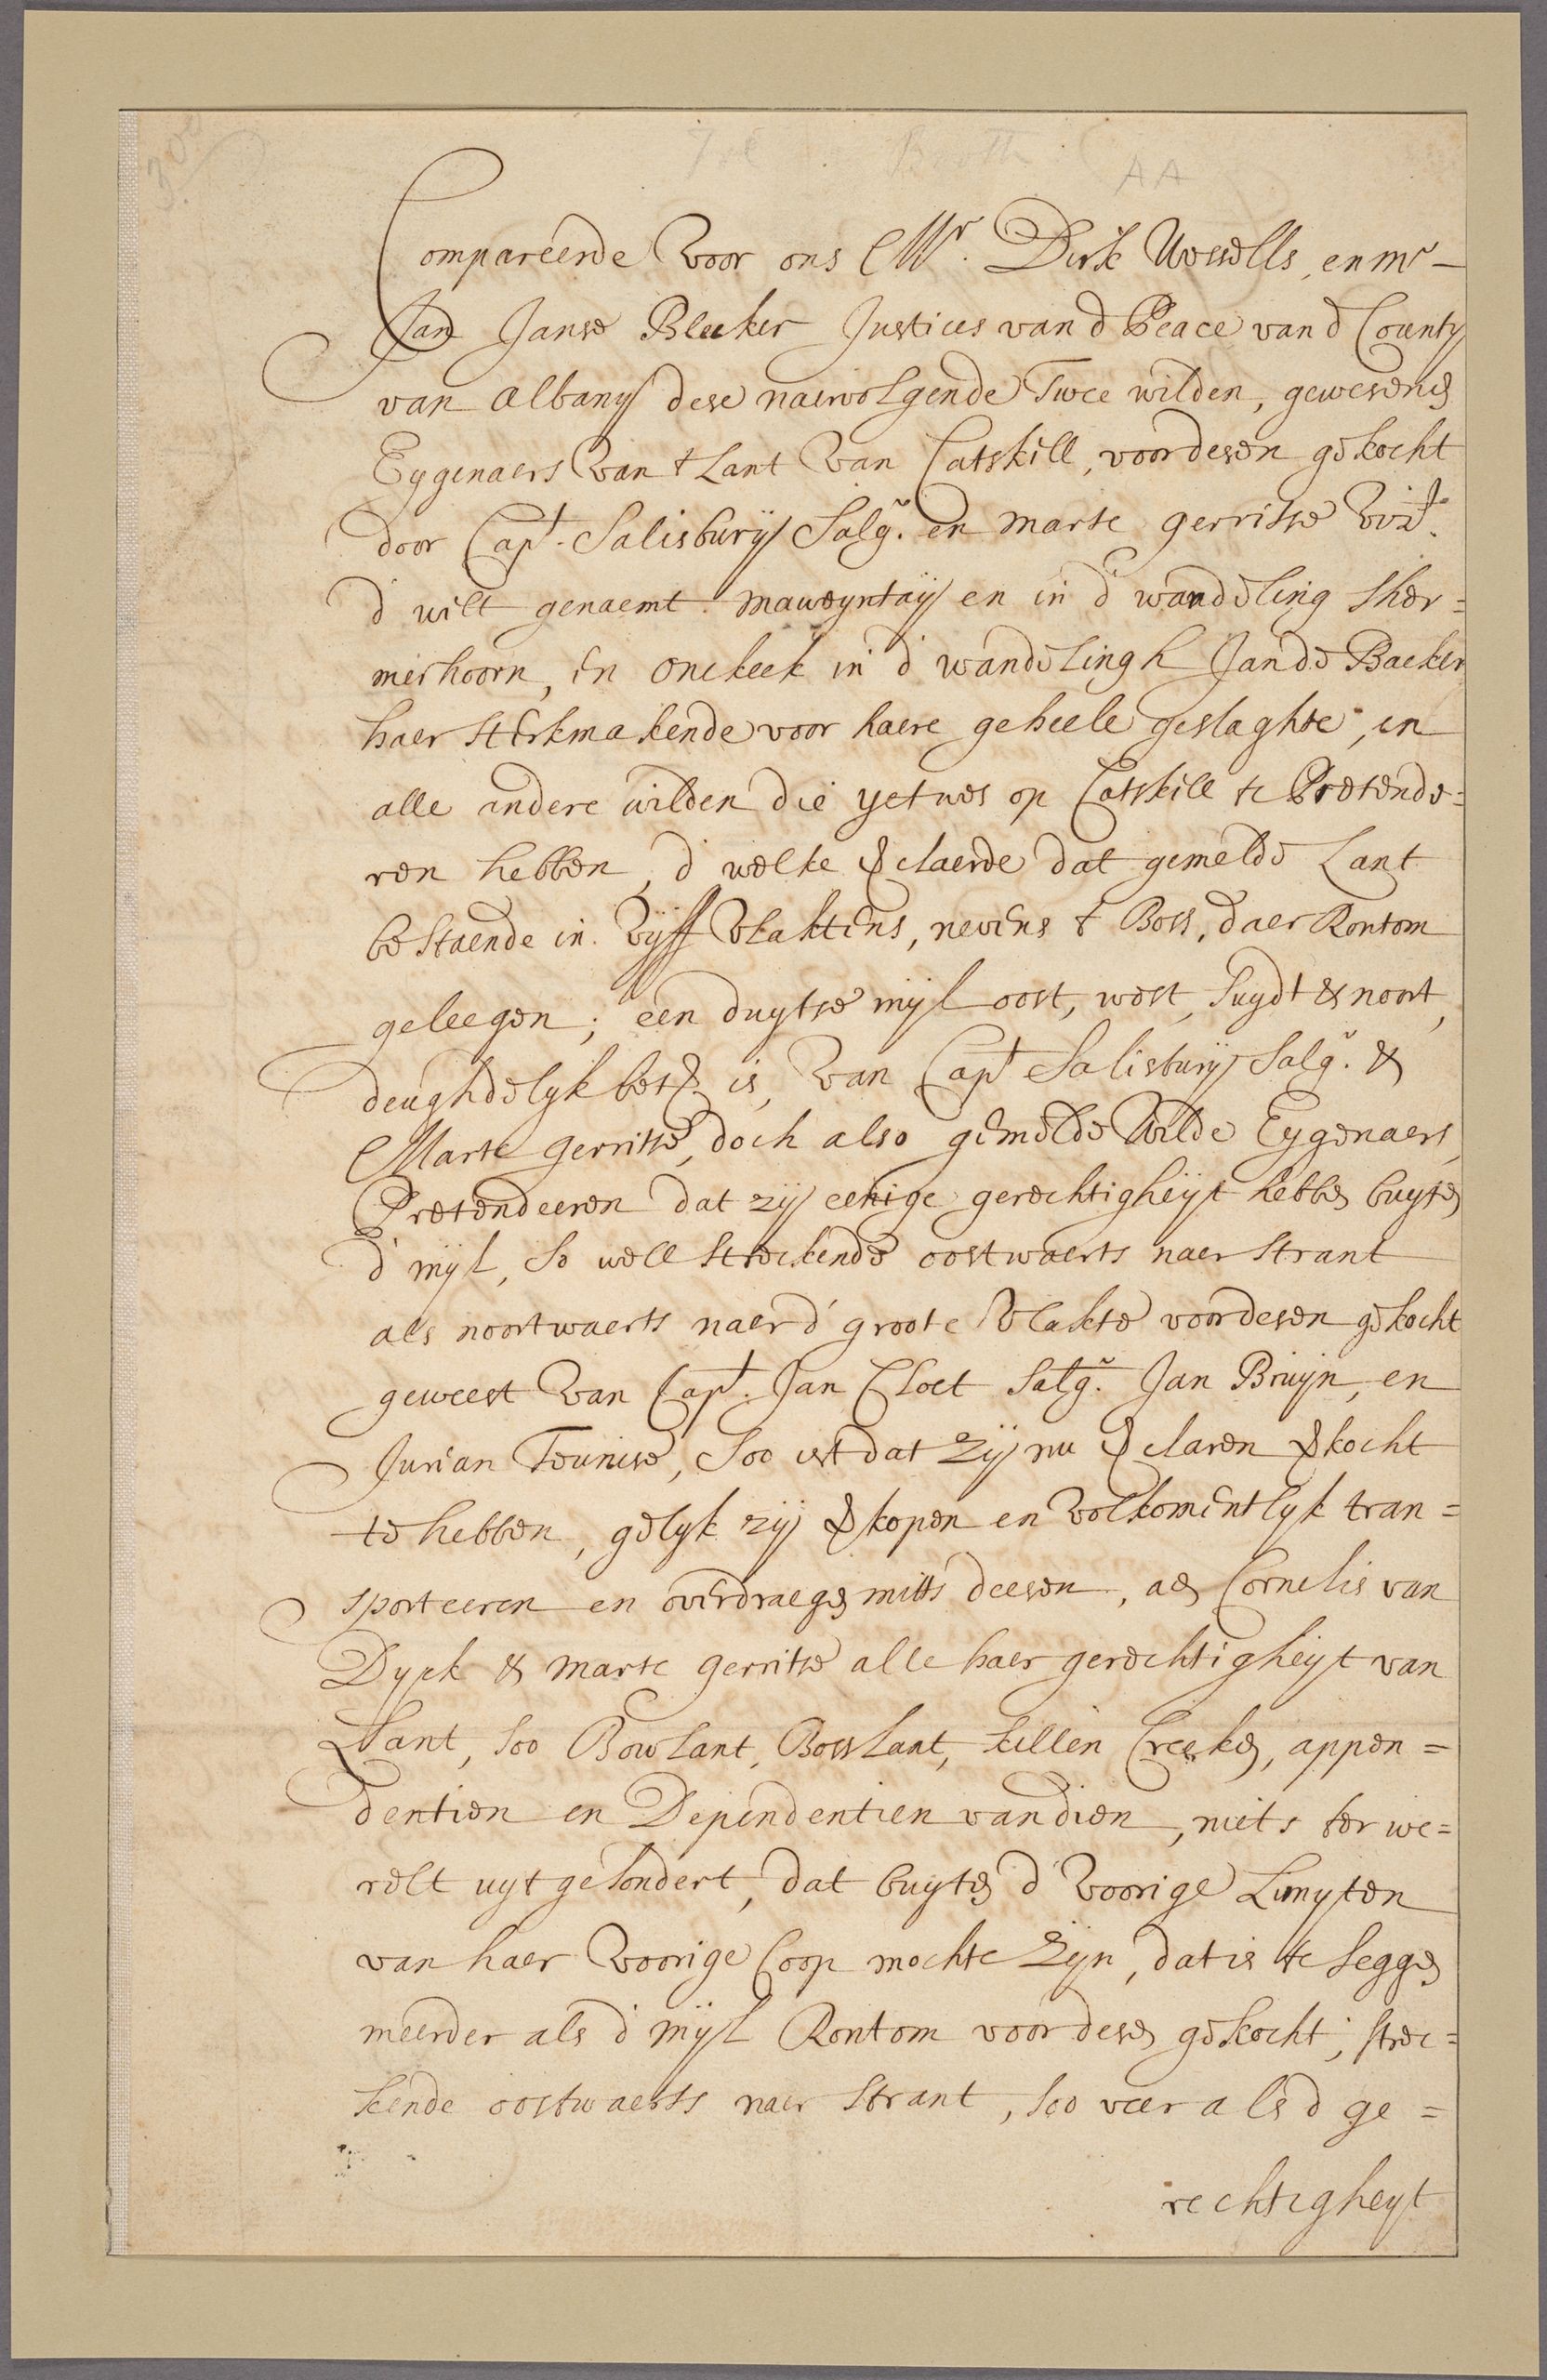 AA
Compareerde Voor ons Mr. Dirk Wessells, en mr
Jan Janse Bleeker Justices van d Peace van d County
van Albany dese naervolgende Twee wilden, gewesene
Eygenaers Van t Lant Van Catskill, voordesen gekocht
door Capt. Salisbury Salgr. en Marte gerritse vizt.
d wilt genaemt Maweyntay en in d' wandeling Sher=
merhoorn, En Onckeek in d' wandelingh Jan de Backer
haer sterkmakende voor haere geheele geslaghte, en
alle andere wilden die yetwes op Catskill te Pretende=
ren hebben, d' welke verclaerde dat gemelde Lant
bestaende in Vyff Vlaktens, nevens t Boss, daer Rontom
geleegen; een duytse myl oost, west, Suydt & noort,
deughdelyk bet. is, Van Capt Salisbury Salgr. &
Marte gerritse, doch also gemelde Wilde Eygenaers,
Pretendeeren dat zy eenige gerechtigheyt hebben buyten
d' myl, So well streckende oostwaerts naer strant
als noortwaerts naer d' groote Vlakte voordesen gekocht
geweest Van Capt. Jan Cloet Salgr. Jan Bruyn, en
Jurian Teunise, Soo ist dat zy nu verclaren verkocht
te hebben, gelyk zy verkopen en Volkomentlyk tran=
sporteeren en overdraegen mitts deesen, aen Cornelis van
Dyck & Marte gerritse alle haer gerechtigheyt van
Lant, Soo Bowlant, Bosslant, killen Creeken, appen=
dentien en Dependentien van dien, niets ter we=
relt uytgesondert, dat buyten d' Voorige Limyten
van haer Voorige Coop mochte zyn, dat is te seggen
meerder als d' myl Rontom voordesen gekocht; strec=
kende oostwaerts naer strant, soo veer als d ge=
rechtigheyt